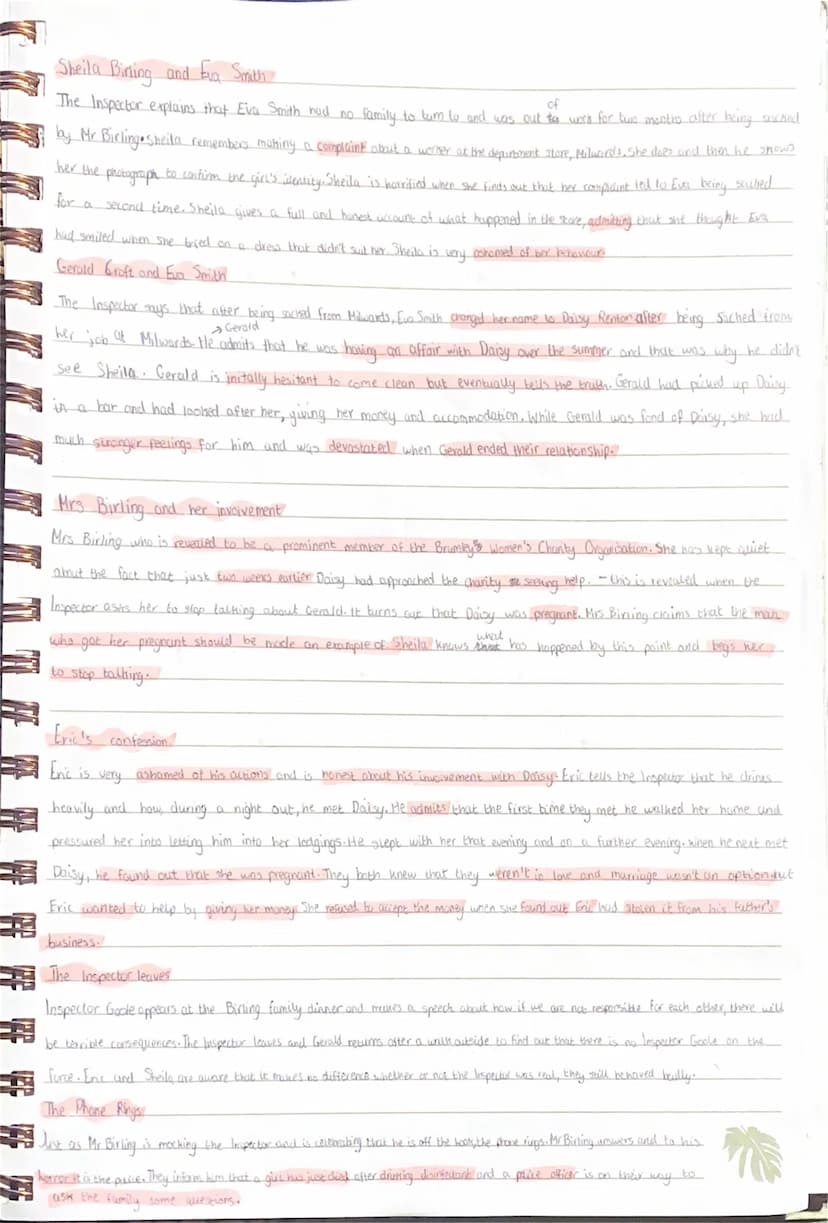 Sheila Birling and Eva Smith
The Inspector explains that Eva Smith had no family to turn to and was out of work for two months after being sacked
by Mr Birling. Sheila remembers making a complaint about a worker at the department store, Milwards. She does and then he shows
her the photograph to confirm the girl's identity. Sheila is horrified when she finds out that her complaint led to Eva being sacked
for a second time. Sheila gives a full and honest account of what happened in the store, admitting that she thought Eva
had smiled when she tried on a dress that didn't suit her. Sheila is very ashamed of her behaviour.
Gerald Croft and Eva Smith
The Inspector says that after being sacked from Milwards, Eva Smith changed her name to Daisy Renton after being sacked from
→ Gerald
her job at Milwards. He admits that he was having an affair with Daisy over the summer and that was why he didn't
see Sheila. Gerald is initally hesitant to come clean but eventually tells the truth. Gerald had picked up Daisy
in a bar and had looked after her, giving her money and accommodation. While Gerald was fond of Daisy, she had
much stronger feelings for him and was devastated when Gerald ended their relationship.
Mrs Birling and her involvement
Mrs Birling who is revealed to be a prominent member of the Brumley's Women's Charity Organisation. She has kept quiet
about the fact that just two weeks earlier Daisy had approached the charity seeking help. - this is revealed when the
Inspector asks her to stop talking about Gerald. It turns out that Daisy was pregnant. Mrs Birling claims that the man
who got her pregnant should be made an example of Sheila knows what has happened by this point and begs her
to stop talking.
Eric's confession
Eric is very ashamed of his actions and is honest about his involvement with Daisy. Eric tells the Inspector that he drinks
heavily and how, during a night out, he met Daisy. He admits that the first time they met he walked her home and
pressured her into letting him into her lodgings. He slept with her that evening and on a further evening. When he next met
Daisy, he found out that she was pregnant. They both knew that they weren't in love and marriage wasn't an option but
Eric wanted to help by giving her money. She refused to accept the money when she found out Eric had stolen it from his father's
business.
The Inspector leaves
Inspector Goole appears at the Birling family dinner and makes a speech about how if we are not responsible for each other, there will
be terrible consequences. The Inspector leaves and Gerald returns after a walk outside to find out that there is no Inspector Goole on the
force. Eric and Sheila are aware that it makes no difference whether or not the Inspector was real, they still behaved badly.
The Phone Rings
Just as Mr Birling is mocking the Inspector and is celebrating that he is off the hook, the phone rings. Mr Birling answers and to his
horror it is the police. They inform him that a girl has just died after drinking disinfectant and a police officer is on their way to
ask the family some questions.